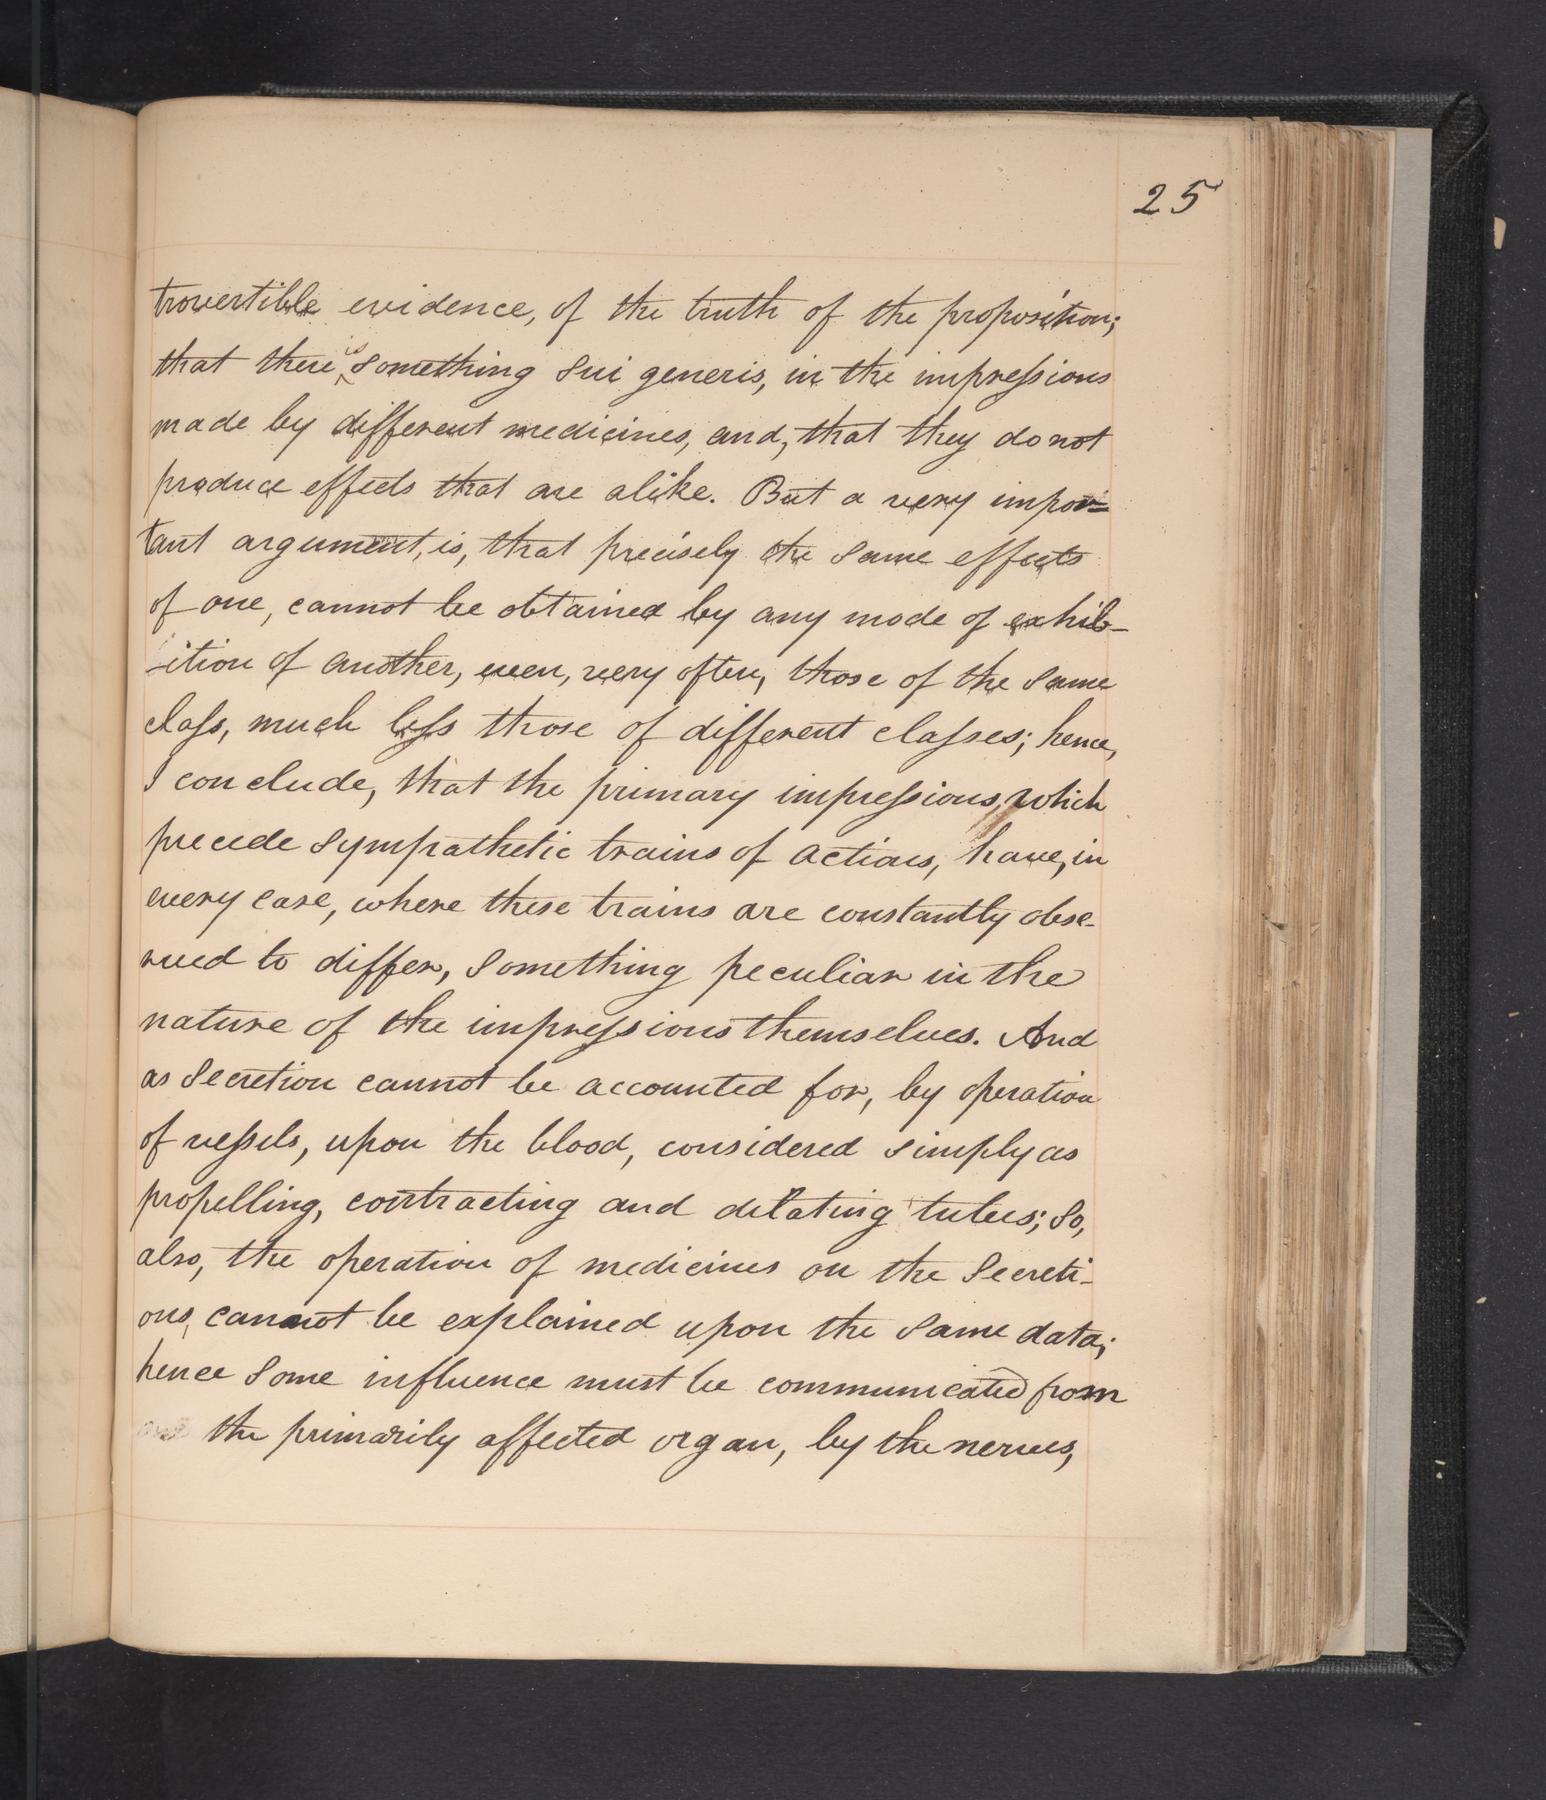 25
trovertible evidence, of the truth of the proposition;
that there is something sui generis, in the impressions
made by different medicines, and, that they do not
produce effects that are alike. But a very impor=
tant argument, is, that precisely the same effects
of one, cannot be obtained by any mode of exhib-
-ition of another, even, very often, those of the same
class, much less those of different classes; hence,
I conclude, that the primary impressions, which
precede sympathetic trains of actions, have, in
every case, where these trains are constantly obse-
rved to differ, something peculiar in the
nature of the impressions themselves. And
as secretion cannot be accounted for, by operation
of vessels, upon the blood, considered simply as
propelling, contracting and dilating tubes; so,
also, the operation of medicines on the secreti-
ons, cannot be explained upon the same data;
hence some influence must be communicated from
the primarily affected organ, by the nerves,